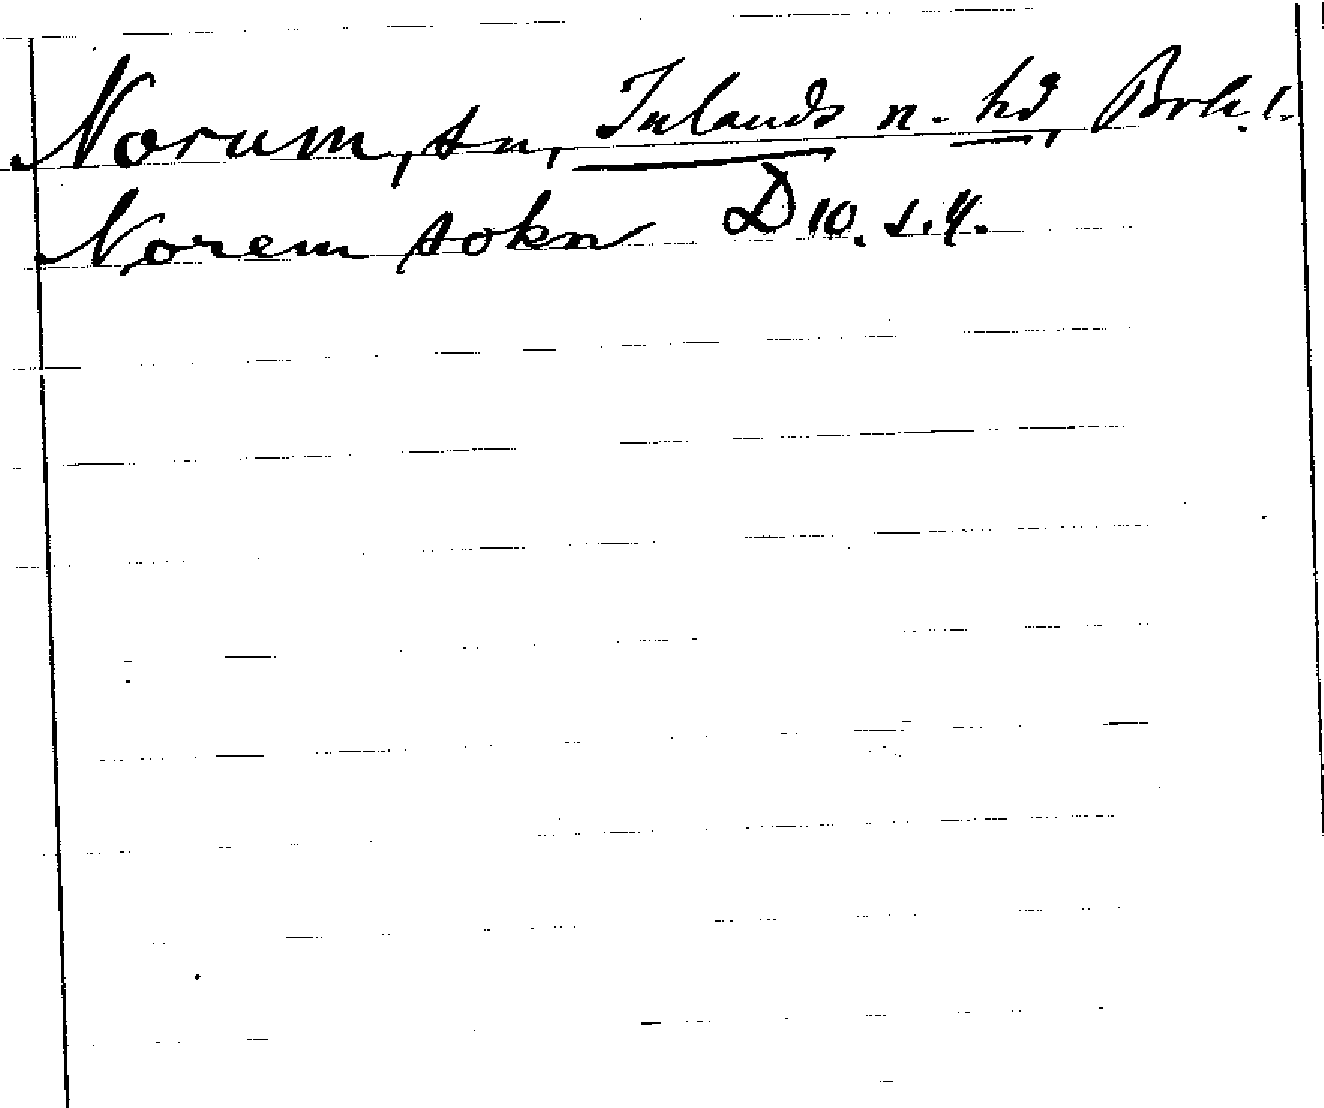 Norum, sn, Inlands n. hd, Boh. l.
Norem sokn D 10. s. 4.